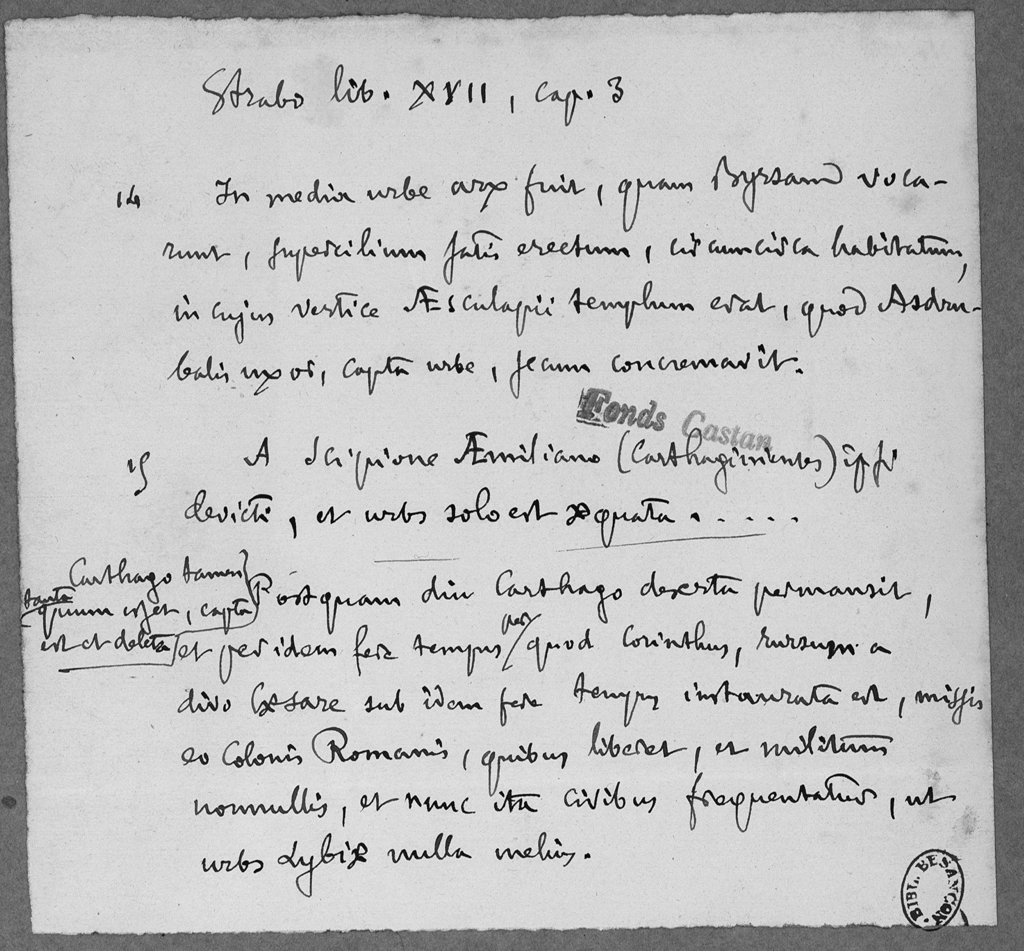 Strabo lib. XVII, cap. 3
14 In media urbe arx fuit, quam Byrsam voca-
runt, supercilium satis erectum, circumcirca habitatum,
in cujus vertice Æsculapii templum erat, quod Asdru-
balis uxor, capta urbe, secum concremavit.
Fonds Castan
15 A Scipione Æmiliano (Carthaginienses) ipsi
devicti, et urbs solo est æquata.....
Carthago tamen
tanta
quum esset, capta
est et deleta
Postquam diu Carthago deserta permansit,
et per idem fere tempus per quod Corinthus, rursum a
divo Cæsare sub idem fere tempus instaurata est, missis
eo colonis Romanis, quibus liberet, et militum
nonnullis, et nunc ita civibus frequentatur, ut
urbs Lybiæ nulla melius.
BIBL. BESANCON